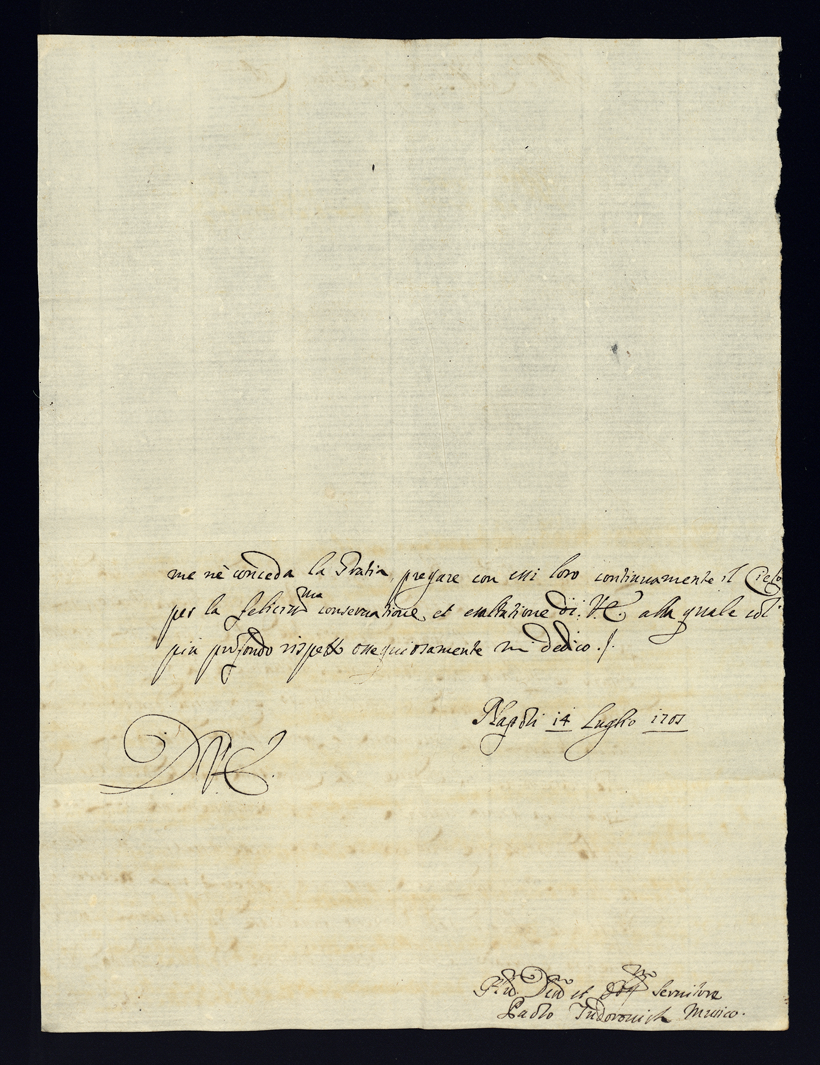 me nè conceda la Gratia, pregare con essi loro continuamente il Cielo
per la felicissma conservatione, et esaltatione di V.E. alla quale col
più profondo rispetto ossequiosamente mi dedico ./.
Napoli 14 Luglio 1701
D.V.E.
et Servitore
Paolo Musico.